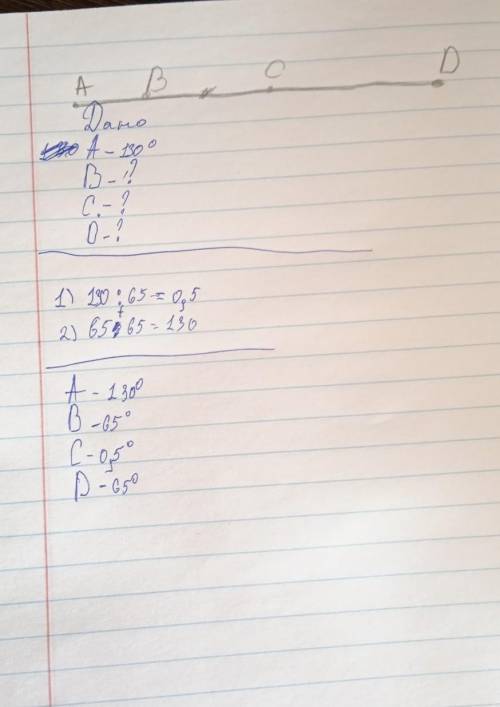 A B C D
Дано
A - 130°
B - ?
C. - ?
D - ?
1) 130 : 65 = 0,5
2) 65 + 65 = 130
A - 130°
B - 65°
C - 0,5°
D - 65°